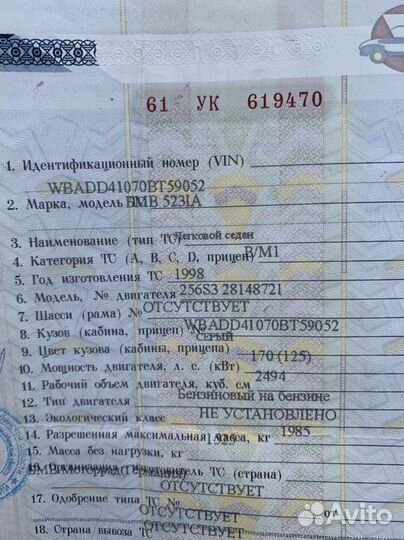 61 УК 619470
1. Идентификационный номер (VIN)
WBADD41070BT59052
2. Марка, модель ТС БМВ 523IA
3. Наименование (тип ТС) Легковой седан
4. Категория ТС (A, B, C, D, прицеп) B/M1
5. Год изготовления ТС 1998
6. Модель, № двигателя 256S3 28148721
7. Шасси (рама) № ОТСУТСТВУЕТ
8. Кузов (кабина, прицеп) № WBADD41070BT59052
9. Цвет кузова (кабины, прицепа) СЕРЫЙ
10. Мощность двигателя, л. с. (кВт) 170 (125)
11. Рабочий объем двигателя, куб. см 2494
12. Тип двигателя Бензиновый на бензине
13. Экологический класс НЕ УСТАНОВЛЕНО
14. Разрешенная максимальная масса, кг 1985
15. Масса без нагрузки, кг
16. Организация-изготовитель ТС (страна)
17. Одобрение типа ТС № ОТСУТСТВУЕТ
ОТСУТСТВУЕТ от
18. Страна вывоза ТС ОТСУТСТВУЕТ
Avito